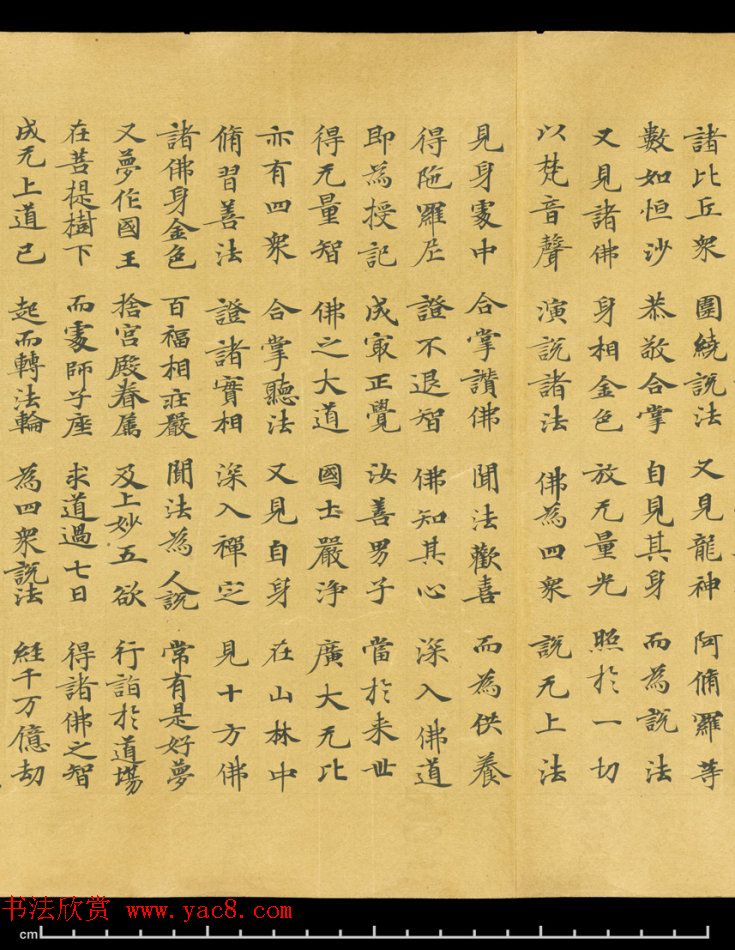 諸比丘衆 圍繞說法 又見龍神 阿脩羅等
數如恒沙 恭敬合掌 自見其身 而為說法
又見諸佛 身相金色 放无量光 照於一切
以梵音聲 演說諸法 佛為四衆 說无上法
見身處中 合掌讚佛 聞法歡喜 而為供養
得陁羅尼 證不退智 佛知其心 深入佛道
即為授記 成㝡正覺 汝善男子 當於来世
得无量智 佛之大道 國土嚴淨 廣大无比
亦有四衆 合掌聽法 又見自身 在山林中
脩習善法 證諸實相 深入禪定 見十方佛
諸佛身金色 百福相莊嚴 聞法為人說 常有是好夢
又夢作國王 捨宮殿眷属 及上妙五欲 行詣於道場
在菩提樹下 而處師子座 求道過七日 得諸佛之智
成无上道已 起而轉法輪 為四衆說法 經千万億劫
书法欣赏 www.yac8.com
cm